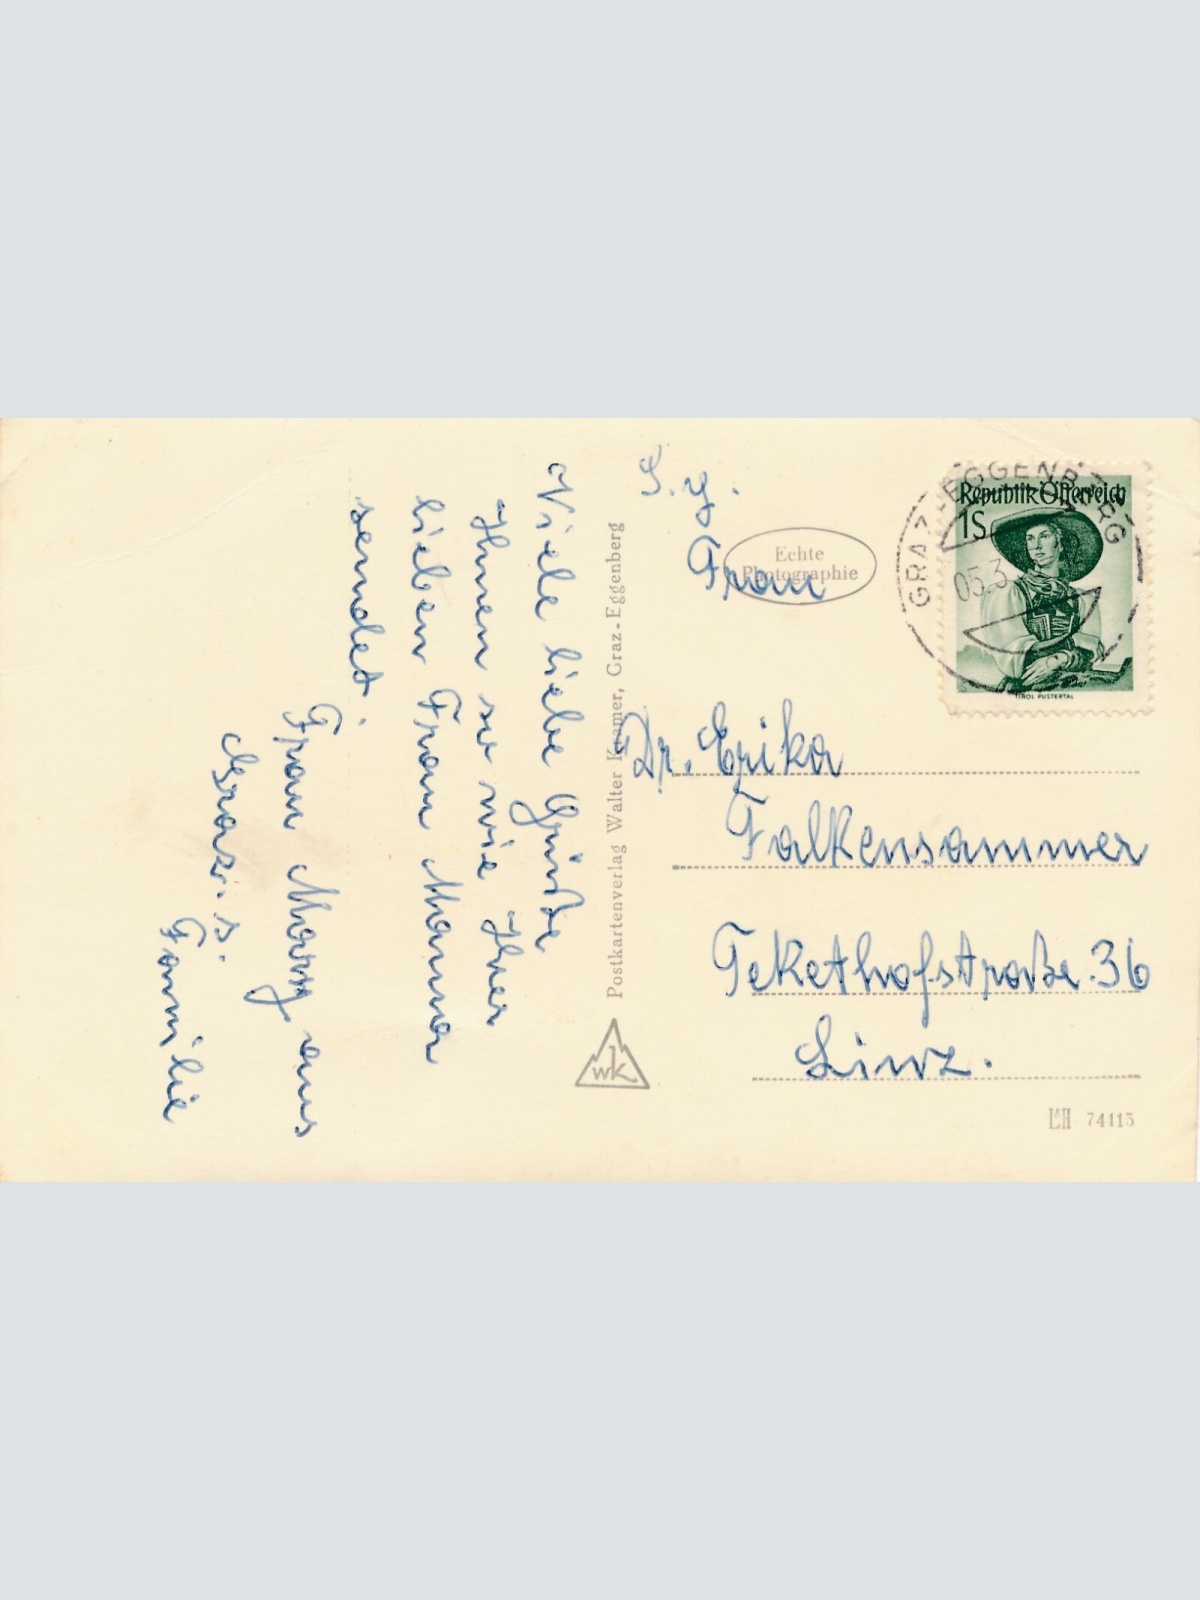 Viele liebe Grüße
Ihnen so wie Ihrer
lieben Frau Mama
sendet.
Frau Marg aus
Graz. s.
Familie
Postkartenverlag Walter Kramer, Graz-Eggenberg
wk
Echte
Photographie
S. g.
Frau
Dr. Erika
Falkensammer
Tekethofstraße 36
Linz.
L&H 74115
GRAZ-EGGENBERG
05.3
Republik Österreich
1S
TIROL PUSTERTAL